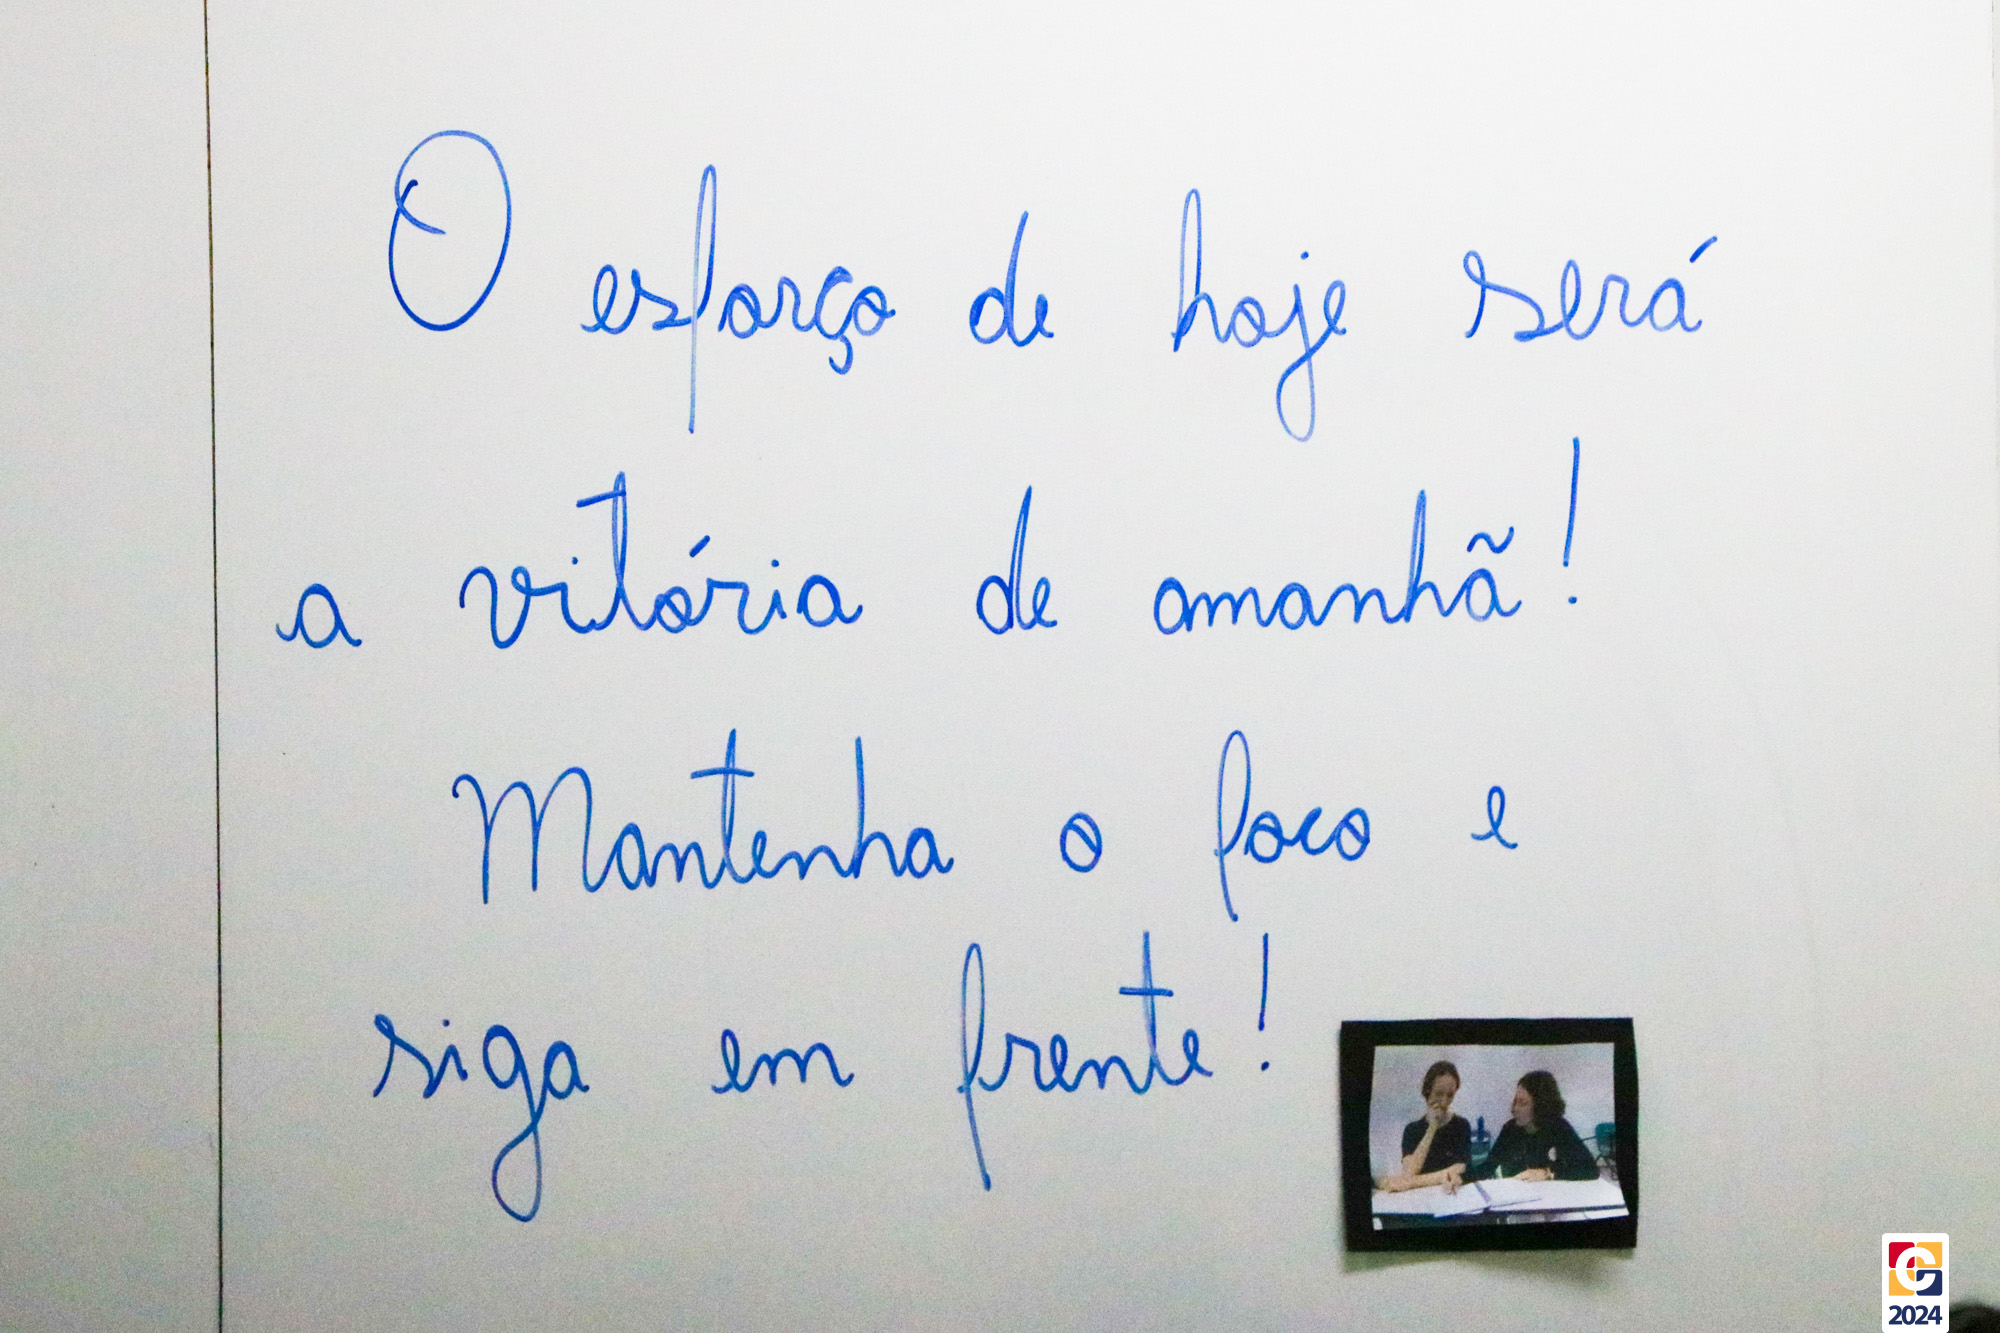 O esforço de hoje será
a vitória de amanhã!
Mantenha o foco e
siga em frente!
2024